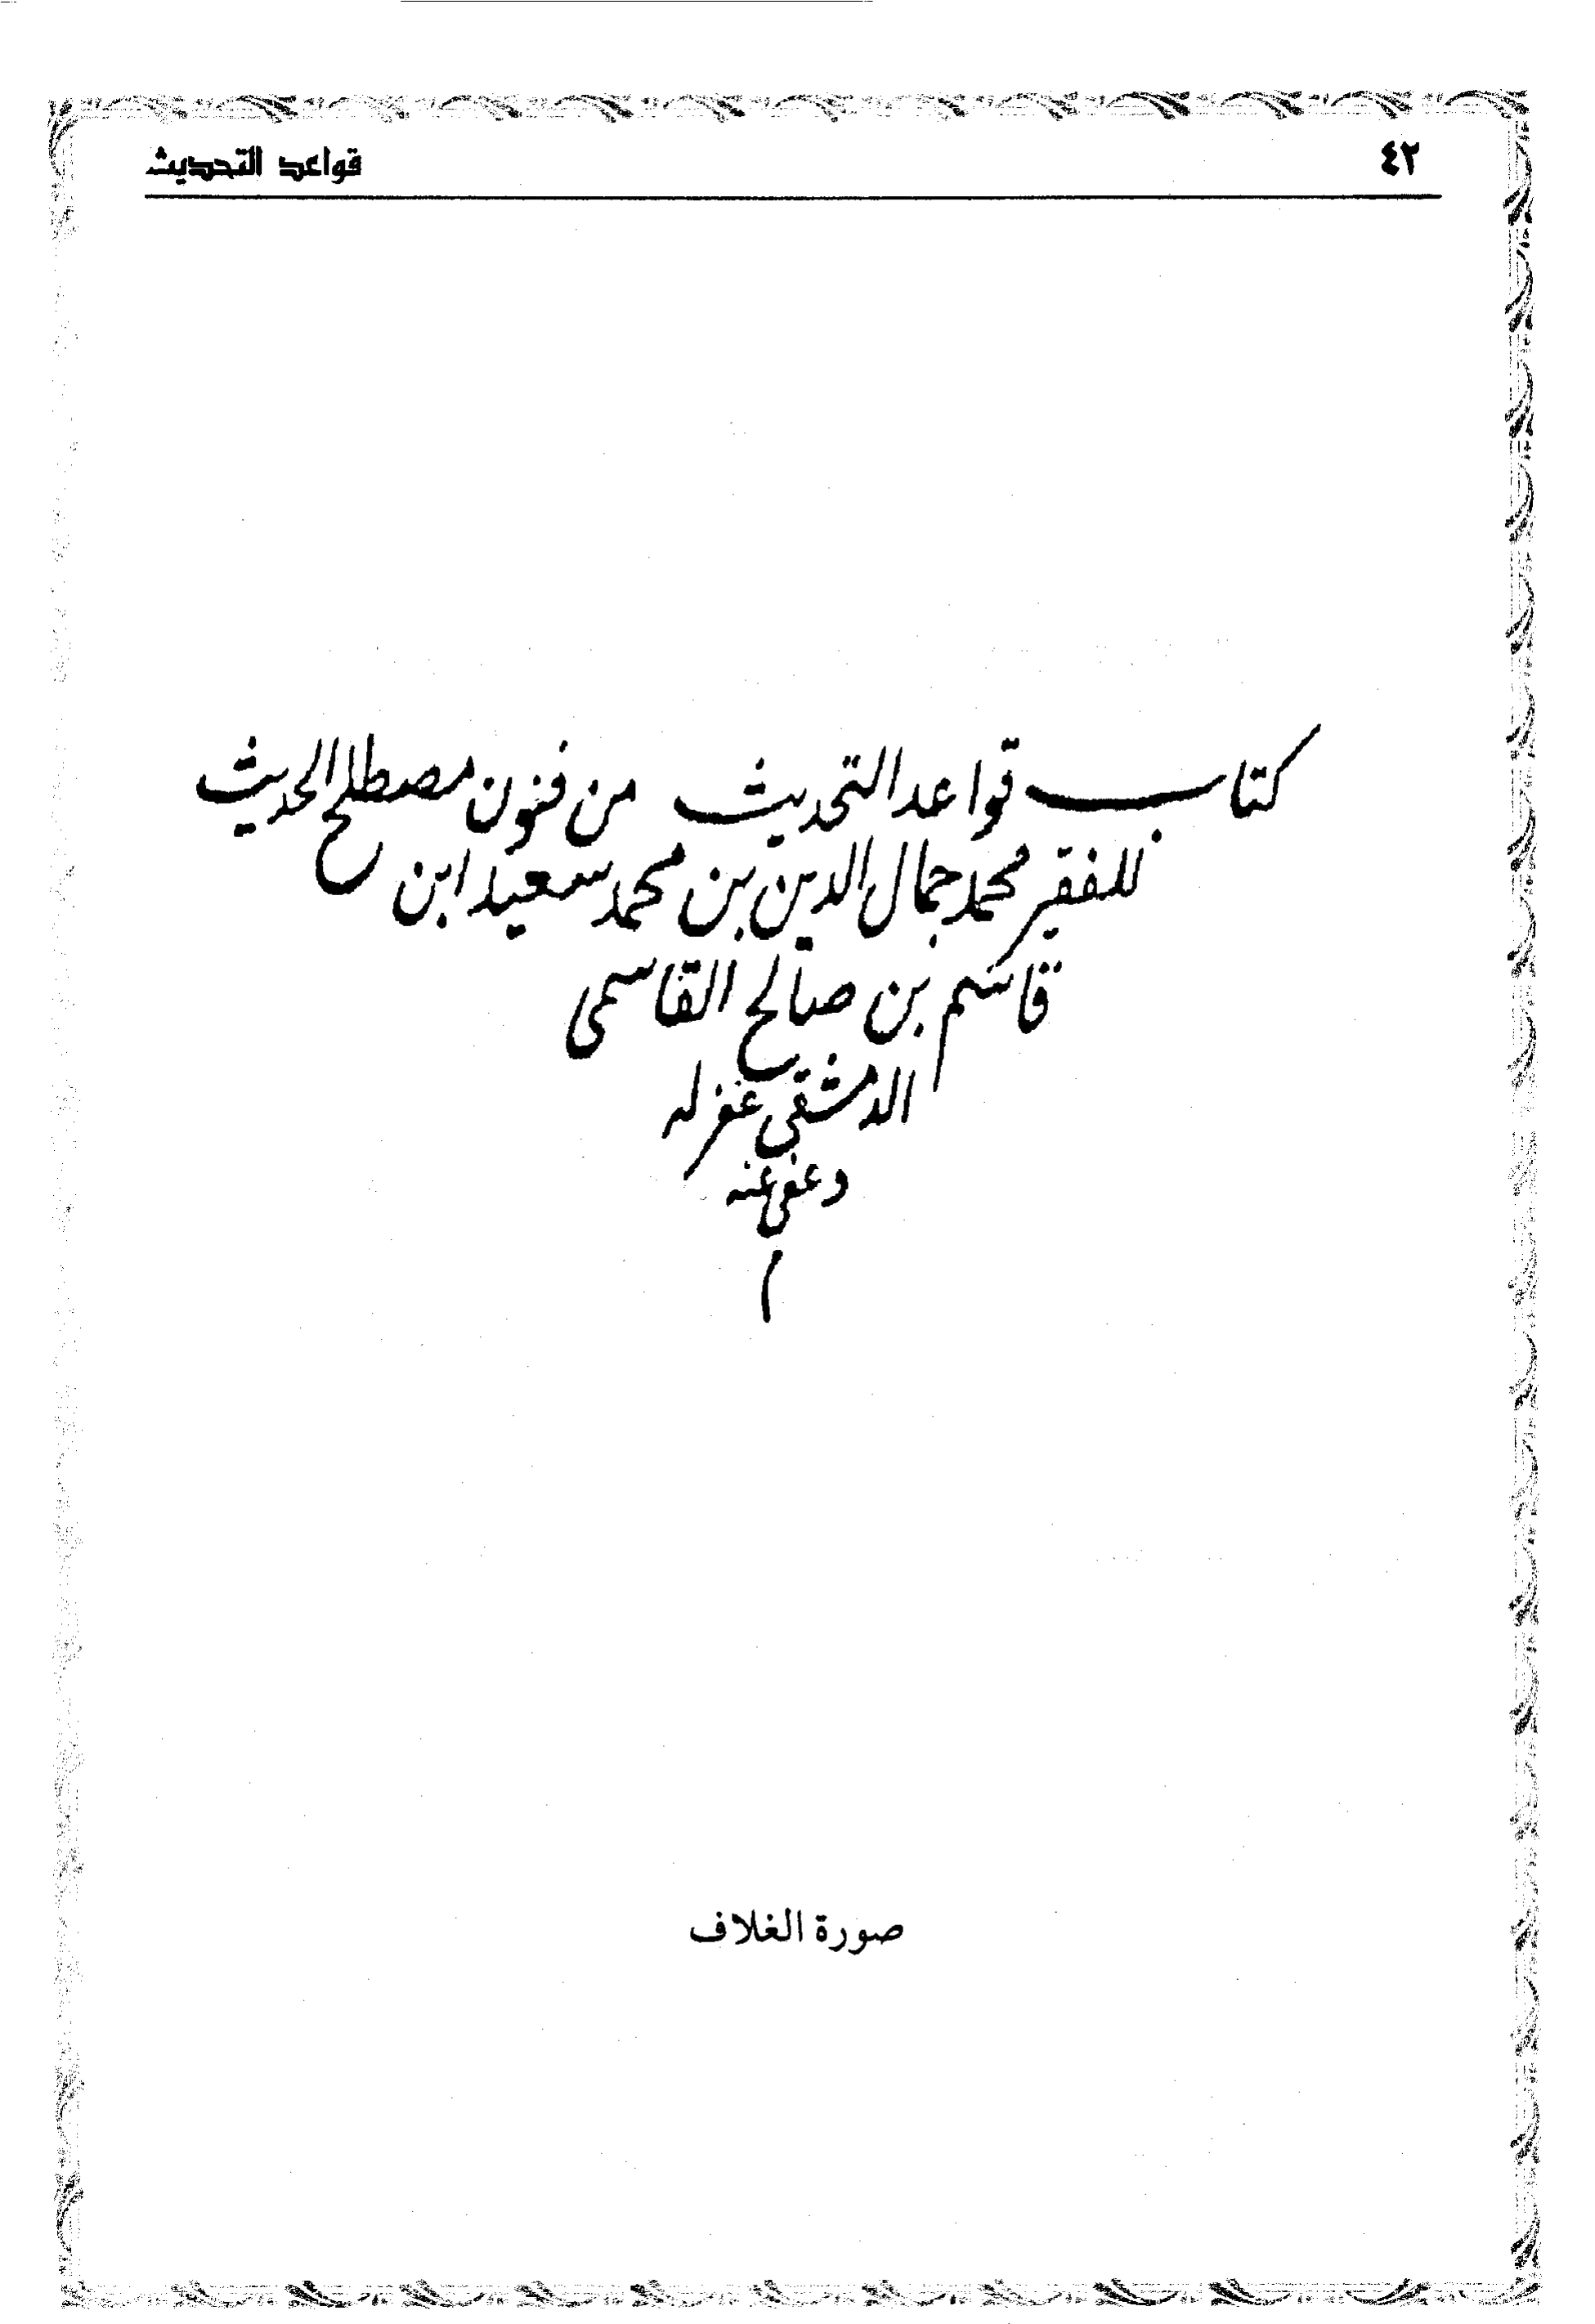 ٤٢
قواعد التحديث
كتاب قواعد التحديث من فنون مصطلح الحديث
للفقير محمد جمال الدين بن محمد سعيد ابن
قاسم بن صالح القاسمى
الدمشقى غفر له
وعفى عنه
م
صورة الغلاف